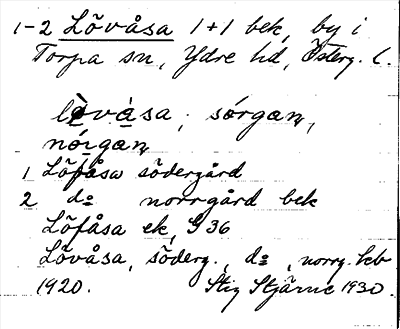 1-2 Lövåsa 1+1 bek, by i
Torpa sn, Ydre hd, Österg. l.
lòvàsa, sórgan,
nórgan
1 Löfåsa södergård
2 do norrgård bek
Löfåsa ek, G 36
Lövåsa, söderg., do, norrg. hb
1920. Stig Stjärne 1930.